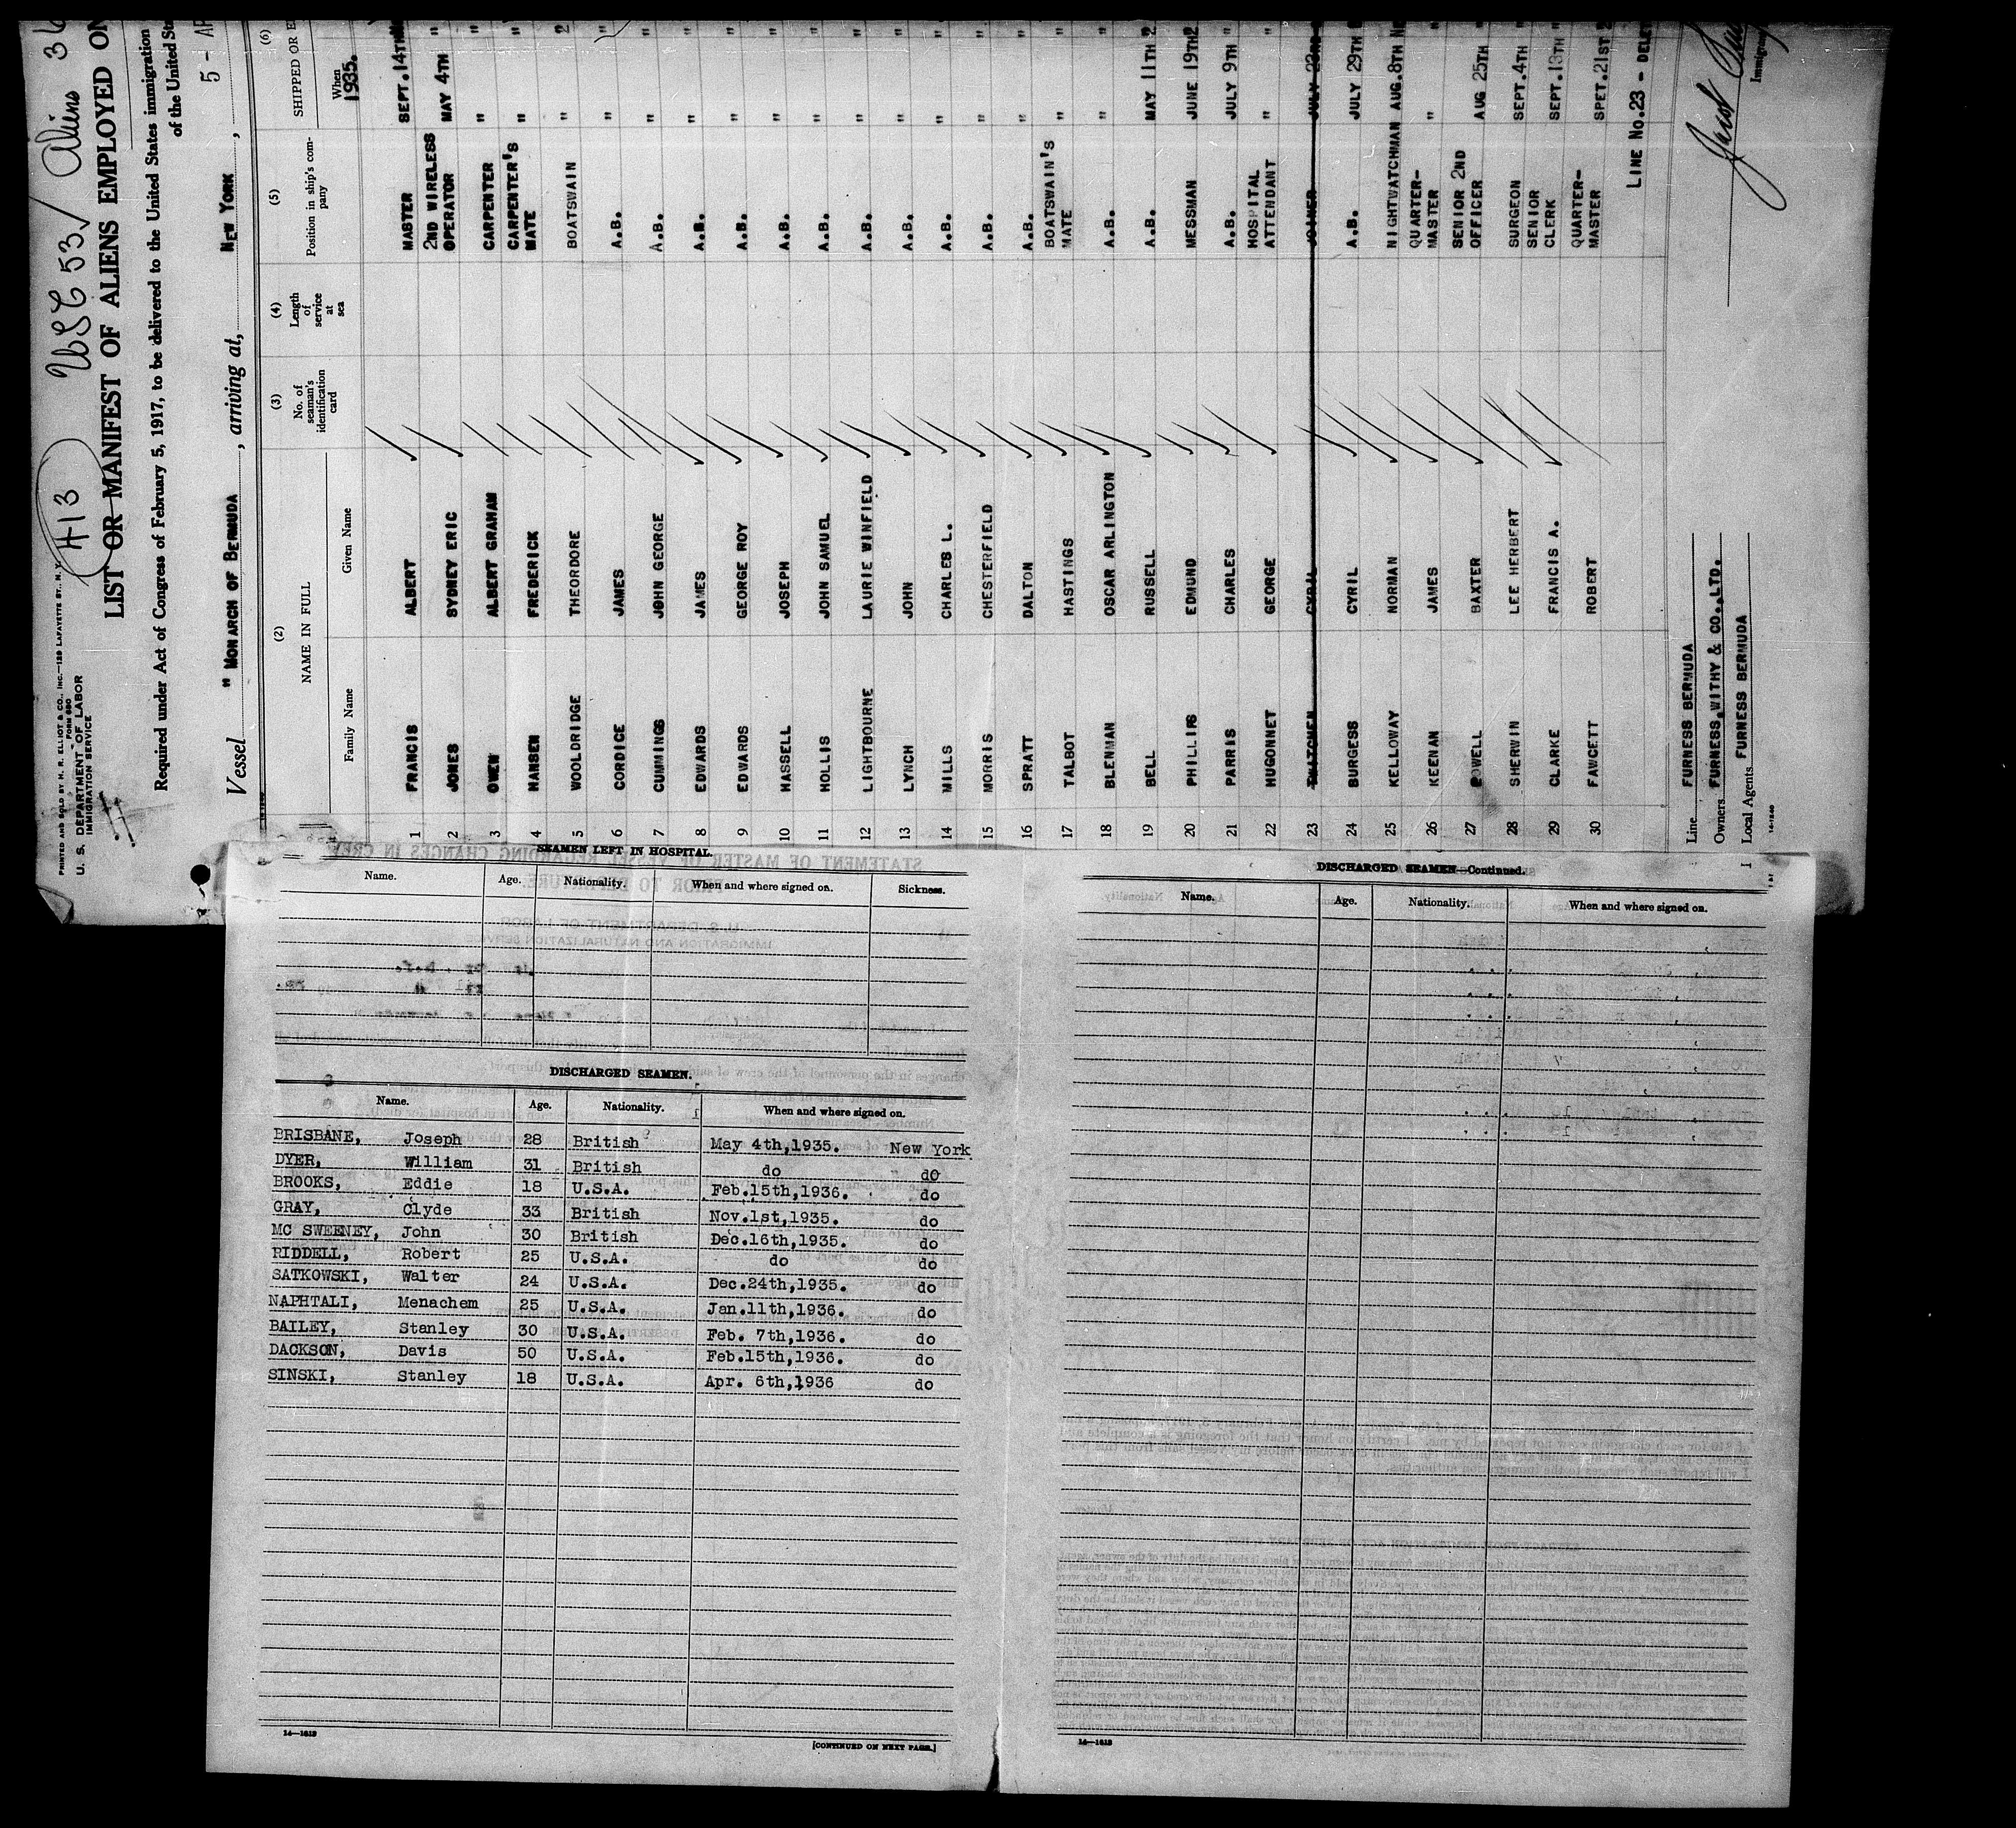 H13 53 Aliens
PRINTED AND SOLD BY H. R. ELLIOT & CO., INC.—129 LAFAYETTE ST., N. Y.
FORM 680
U. S. DEPARTMENT OF LABOR
IMMIGRATION SERVICE
LIST OR MANIFEST OF ALIENS EMPLOYED ON
Required under Act of Congress of February 5, 1917, to be delivered to the United States immigration
of the United
Vessel " MONARCH OF BERMUDA , arriving at, NEW YORK , 5 - AP
(2) (3) (4) (5) (6)
NAME IN FULL No. of seaman's identification card Length of service at sea Position in ship's company SHIPPED OR
Family Name Given Name When
1935.
1 FRANCIS ALBERT MASTER SEPT.14TH
2 JONES SYDNEY ERIC 2ND WIRELESS OPERATOR MAY 4TH "
3 OWEN ALBERT GRAHAM CARPENTER " "
4 HANSEN FREDERICK CARPENTER'S MATE " "
5 WOOLDRIDGE THEORDORE BOATSWAIN " 2
6 CORDICE JAMES A.B. " "
7 CUMMINGS JOHN GEORGE A.B. " "
8 EDWARDS JAMES A.B. " "
9 EDWARDS GEORGE ROY A.B. " "
10 HASSELL JOSEPH A.B. " "
11 HOLLIS JOHN SAMUEL A.B. " "
12 LIGHTBOURNE LAURIE WINFIELD A.B. " "
13 LYNCH JOHN A.B. " "
14 MILLS CHARLES L. A.B. " "
15 MORRIS CHESTERFIELD A.B. " "
16 SPRATT DALTON A.B. " "
17 TALBOT HASTINGS BOATSWAIN'S MATE " "
18 BLENMAN OSCAR ARLINGTON A.B. " "
19 BELL RUSSELL A.B. MAY 11TH 2
20 PHILLIPS EDMUND MESSMAN JUNE 19TH2
21 PARRIS CHARLES A.B. JULY 9TH "
22 HUGONNET GEORGE HOSPITAL ATTENDANT " "
23 CYRIL JOINER JULY 23RD
24 BURGESS CYRIL A.B. JULY 29TH
25 KELLOWAY NORMAN NIGHTWATCHMAN AUG.8TH N
26 KEENAN JAMES QUARTER-MASTER " "
27 POWELL BAXTER SENIOR 2ND OFFICER AUG 25TH "
28 SHERWIN LEE HERBERT SURGEON SEPT.4TH "
29 CLARKE FRANCIS A. SENIOR CLERK SEPT.13TH "
30 FAWCETT ROBERT QUARTER-MASTER SPET.21ST 2
LINE NO.23 - DELE
Line FURNESS BERMUDA
Owners FURNESS,WITHY & CO.,LTD.
Local Agents FURNESS BERMUDA
Immigra
SEAMEN LEFT IN HOSPITAL.
Name. Age. Nationality. When and where signed on. Sickness.
DISCHARGED SEAMEN.
Name. Age. Nationality. When and where signed on.
BRISBANE, Joseph 28 British May 4th,1935. New York
DYER, William 31 British do do
BROOKS, Eddie 18 U.S.A. Feb.15th,1936. do
GRAY, Clyde 33 British Nov.1st,1935. do
MC SWEENEY, John 30 British Dec.16th,1935. do
RIDDELL, Robert 25 U.S.A. do do
SATKOWSKI, Walter 24 U.S.A. Dec.24th,1935. do
NAPHTALI, Menachem 25 U.S.A. Jan.11th,1936. do
BAILEY, Stanley 30 U.S.A. Feb. 7th,1936. do
DACKSON, Davis 50 U.S.A. Feb.15th,1936. do
SINSKI, Stanley 18 U.S.A. Apr. 6th,1936 do
14—1613
[CONTINUED ON NEXT PAGE.]
DISCHARGED SEAMEN—Continued.
Name. Age. Nationality. When and where signed on.
14—1613